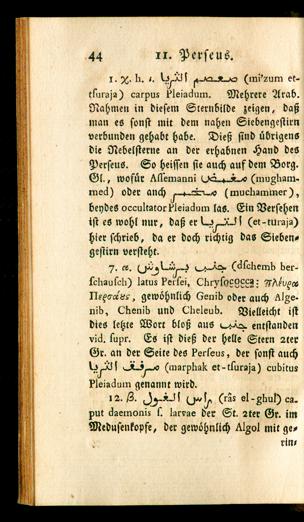 44 11. Perseus.
1. χ. h. ι. معصم الثريا (mi'zum et-
tsuraja) carpus Pleiadum. Mehrere Arab.
Nahmen in diesem Sternbilde zeigen, daß
man es sonst mit dem nahen Siebengestirn
verbunden gehabt habe. Dieß sind übrigens
die Nebelsterne an der erhabnen Hand des
Perseus. So heissen sie auch auf dem Borg.
Gl., wofür Assemanni (mugham-
med) oder auch (muchammer),
beydes occultator Pleiadum las. Ein Versehen
ist es wohl nur, daß er الثريا (et-turaja)
hier schrieb, da er doch richtig das Sieben-
gestirn versteht.
7. α. جنب برشاوش (dschemb ber-
schausch) latus Persei, Chrysococca: πλέυρα
Περσέως, gewöhnlich Genib oder auch Alge-
nib, Chenib und Cheleub. Vielleicht ist
dies letzte Wort bloß aus جنب entstanden
vid. supr. Es ist dieß der helle Stern 2ter
Gr. an der Seite des Perseus, der sonst auch
مرفق الثريا (marphak et-tsuraja) cubitus
Pleiadum genannt wird.
12. β. راس الغول (râs el-ghul) ca-
put daemonis s. larvae der St. 2ter Gr. im
Medusenkopfe, der gewöhnlich Algol mit ge-
rin-